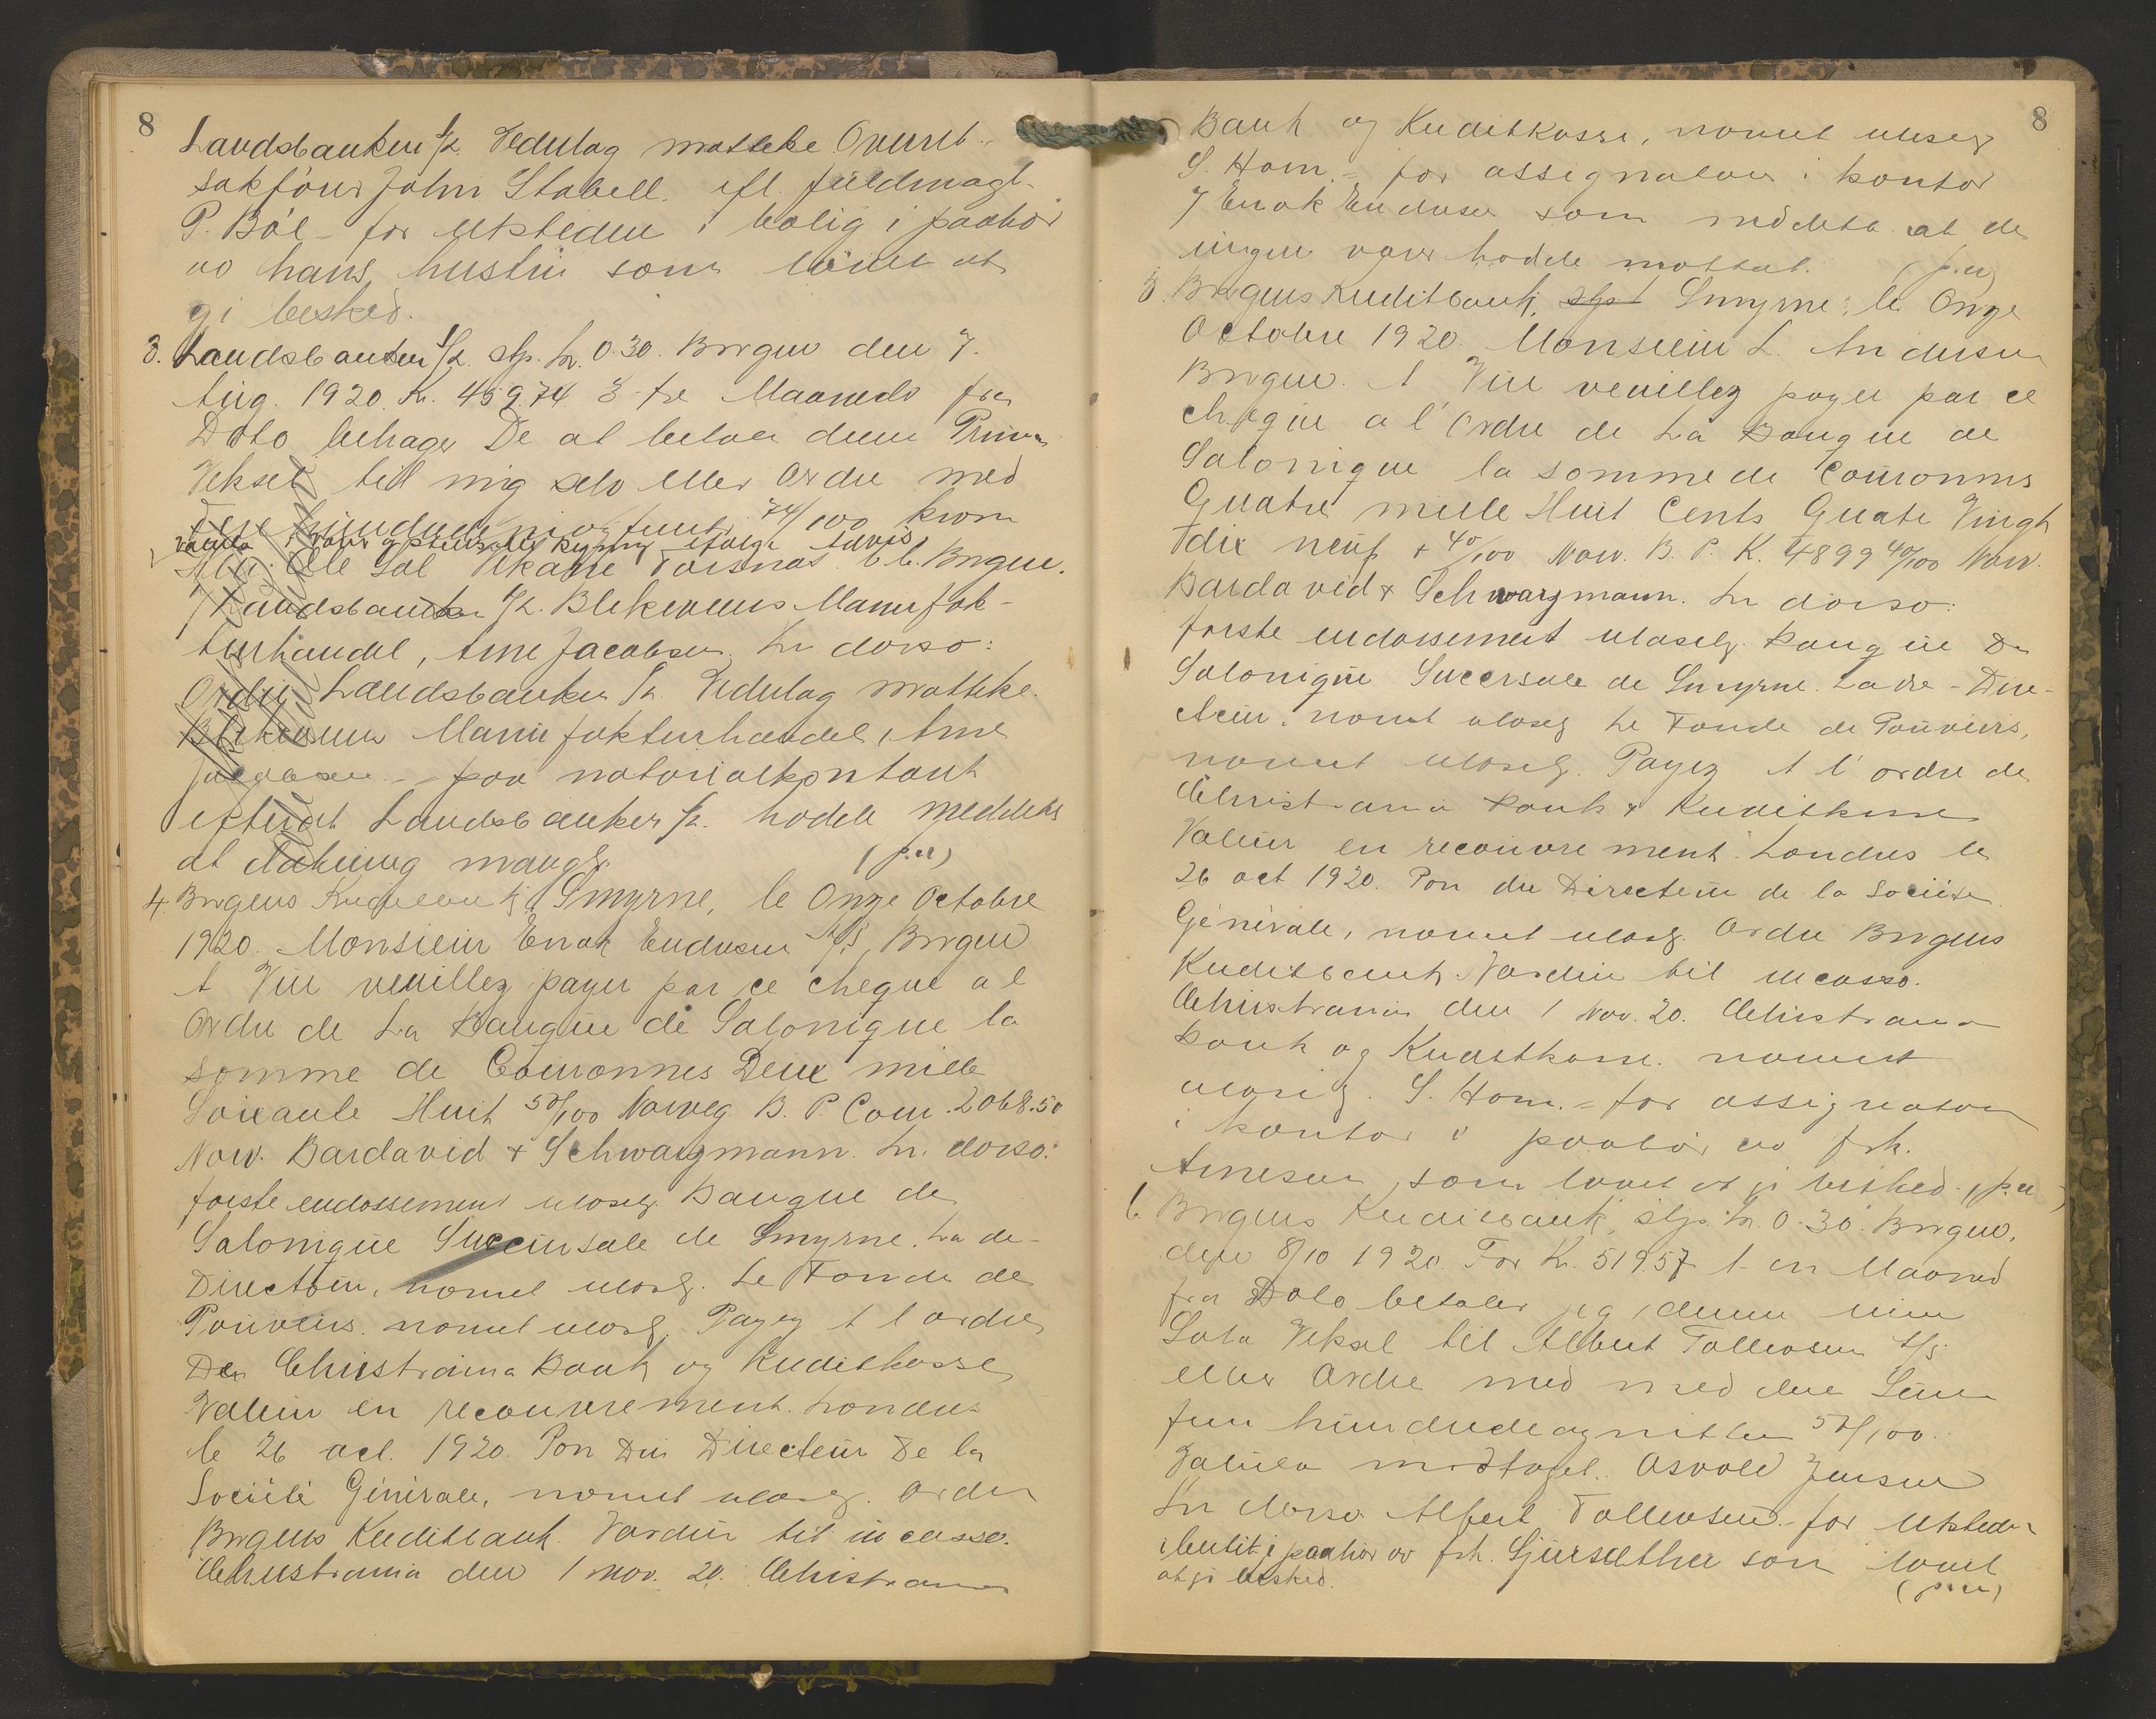 8
Landsbanken A/S. Vedulag mottke Overret-
sakförer John Stabell. efl. fuldmagt.
P. Böe - for Utstederen i bolig i paahör
av hans hustru som lovet at
gi besked.
3. Landsbanken A/S. stp. kr. 0.30. Bergen den 7.
Aug. 1920. Kr. 459.74. 3 - tre Maaneder fra
Dato behager De at betale denne Prima
Veksel till mig selv eller Ordre med
Fire hundrede niogfemti 74/100 kron
Bergen.
Landsbanken A/S. Blekevens Manufak-
turhandel, Arne Jacobsen. In dorso:
Ordre Landsbanken A/S. Vedulag mottke.
Blekevens Manufakturhandel, Arne
Jacobsen - paa notarialkontant
efterat Landsbanken A/S. hadde meddelt
at dækning mangl. (p.u)
4. Bergens Kreditbank, Smyrne, le Onze Octobre
1920. Monsieur Enok Endresen A/S, Bergen
A Vue veuillez payer par ce cheque a l
Ordre de La Banque de Salonique la
somme de Couronnes Deux mille
Soixante Huit 50/100 Norveg. B. P. Cour. 2068.50
Norv. Bardavid & Schwarzmann. In dorso:
förste endossement ulæselg. Banque de
Salonique Succursale de Smyrne. La de-
Directeur, navnet ulæselg. Le Fonde de
Pouvoirs. navnet ulæselg. Payez A l ordre
Den Christiania Bank og Kreditkasse
Valeur en recouvrement. Londres
le 26 oct. 1920. Pon Du Directeur De la
Sociéte Générale, navnet ulæselg. Ordre
Bergens Kreditbank. Værdi til incasso.
Christiania den 1 nov. 20. Christiania
8
Bank og Kreditkasse, navnet ulæselg
S. Horn. - for assignaten i kontor
7 Enok Endresen som meddelte at de
ingen varer hadde mottat. (p.u)
5. Bergens Kreditbank, stp. Smyrne, le Onze
Octobre 1920. Monsieur L. Andersen
Bergen. A Vue veuillez payer par ce
cheque a l' Ordre de La Banque de
Salonique la somme de Couronnes
Quatre mille Huit Cents Quatre Vingt
dix neuf + 40/100 Norv. B. P. K. 4899 40/100 Norv.
Bardavid & Schwarzmann. In dorso:
förste endossement ulæselg. Banque De
Salonique Succersale de Smyrne. La de - Dire-
cteur. navnet ulæselg Le Fonde de Pouvoirs,
navnet ulæselg. Payez A l' ordre de
Christiania Bank & Kreditkasse
Valeur en recouvrement. Londres le
26 oct 1920. Pon du Directeur de la Sociéte
Générale, navnet ulæselg. Ordre Bergens
Kreditbank. Værdi til incasso.
Christiania den 1 Nov. 20. Christiania
Bank og Kreditkasse. navnet
ulæselg. S. Horn. - for assignaten
i kontor i paahör av frk.
Arnesen, som lovet at gi besked. (p.u)
6. Bergens Kreditbank, stp. kr. 0.30. Bergen,
den 8/10 1920. For Kr. 519.57 1 - en Maaned
fra Dato betaler jeg denne min
Sola Veksel til Albert Tollevsen A/S
eller Ordre med med den Sum
fem hundredeognitten 57/100.
Valuta modtaget. Osvald Jensen
In dorso Albert Tollevsen - for Utsteder
i butik i paahör av frk. Gjersæther som lovet
at gi besked. (p.u)